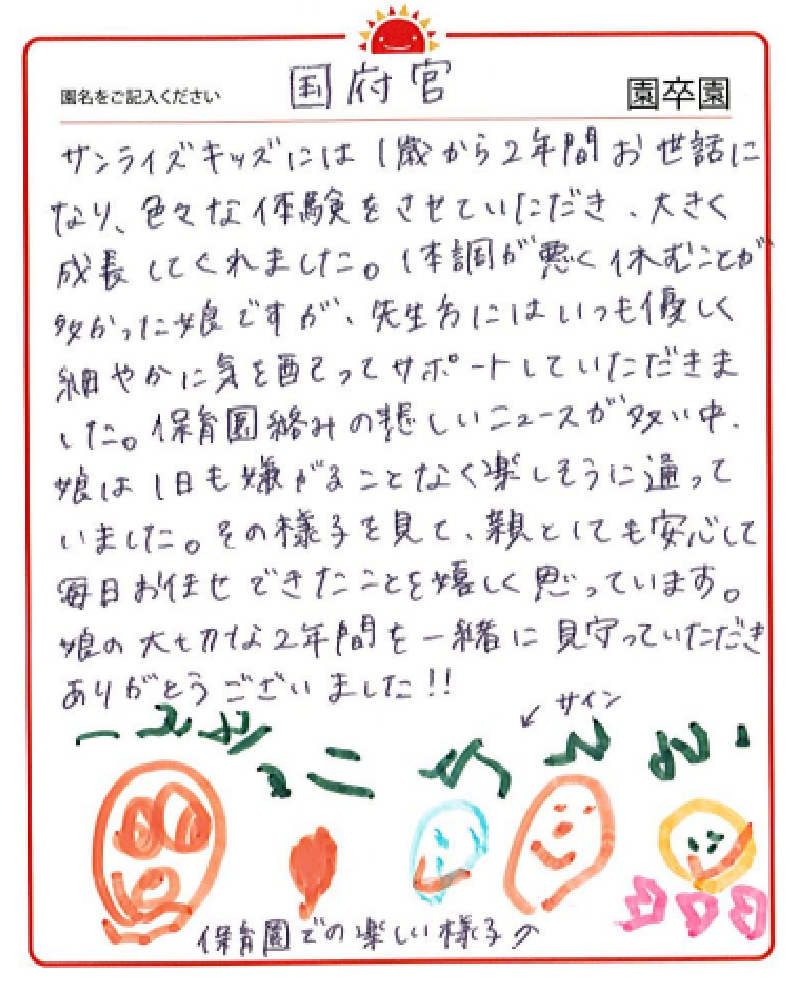 園名をご記入ください 国府宮 園卒園
サンライズキッズには1歳から2年間お世話に
なり、色々な体験をさせていただき、大きく
成長してくれました。体調が悪く休むことが
多かった娘ですが、先生方にはいつも優しく
細やかに気を配ってサポートしていただきま
した。保育園絡みの悲しいニュースが多い中、
娘は1日も嫌がることなく楽しそうに通って
いました。その様子を見て、親としても安心して
毎日お任せできたことを嬉しく思っています。
娘の大切な2年間を一緒に見守っていただき
ありがとうございました!!
↙ サイン
保育園での楽しい様子↗